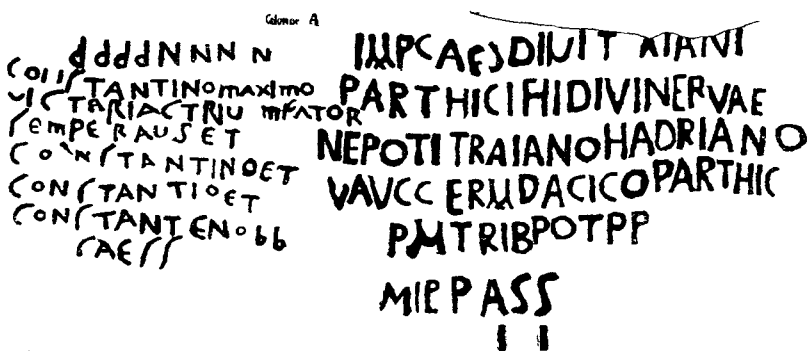 Columna A
ddddNNNN
CONSTANTINOmaximo
VICTARIACTRIUmFATOR
SEMPERAUSET
CONSTANTINOET
CONSTANTIOET
CONSTANTENobb
CAESS
IMPCAESDIVITRAIANI
PARTHICIFIIDIVINERVAE
NEPOTITRAIANOHADRIANO
VAVCCERMDACICOPARTHIC
PMTRIBPOTPP
MIEPASS
II